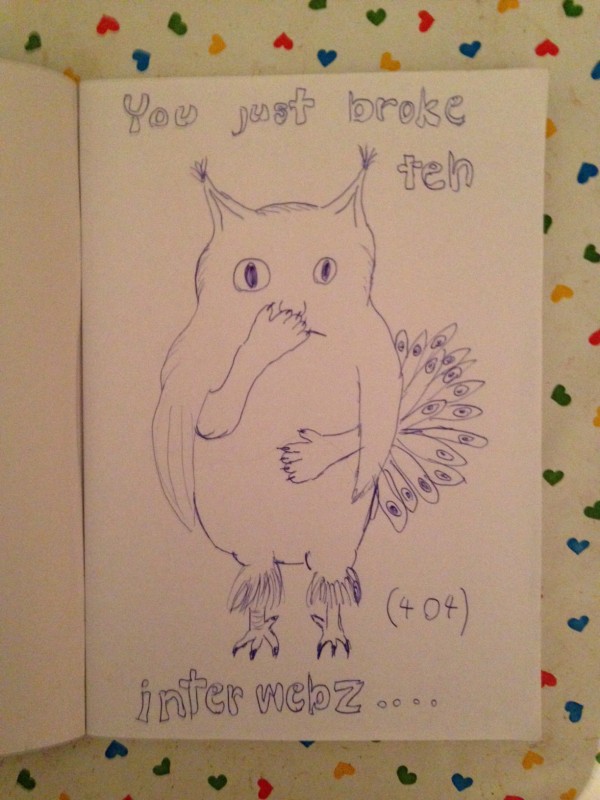 You just broke
teh
(404)
interwebz....